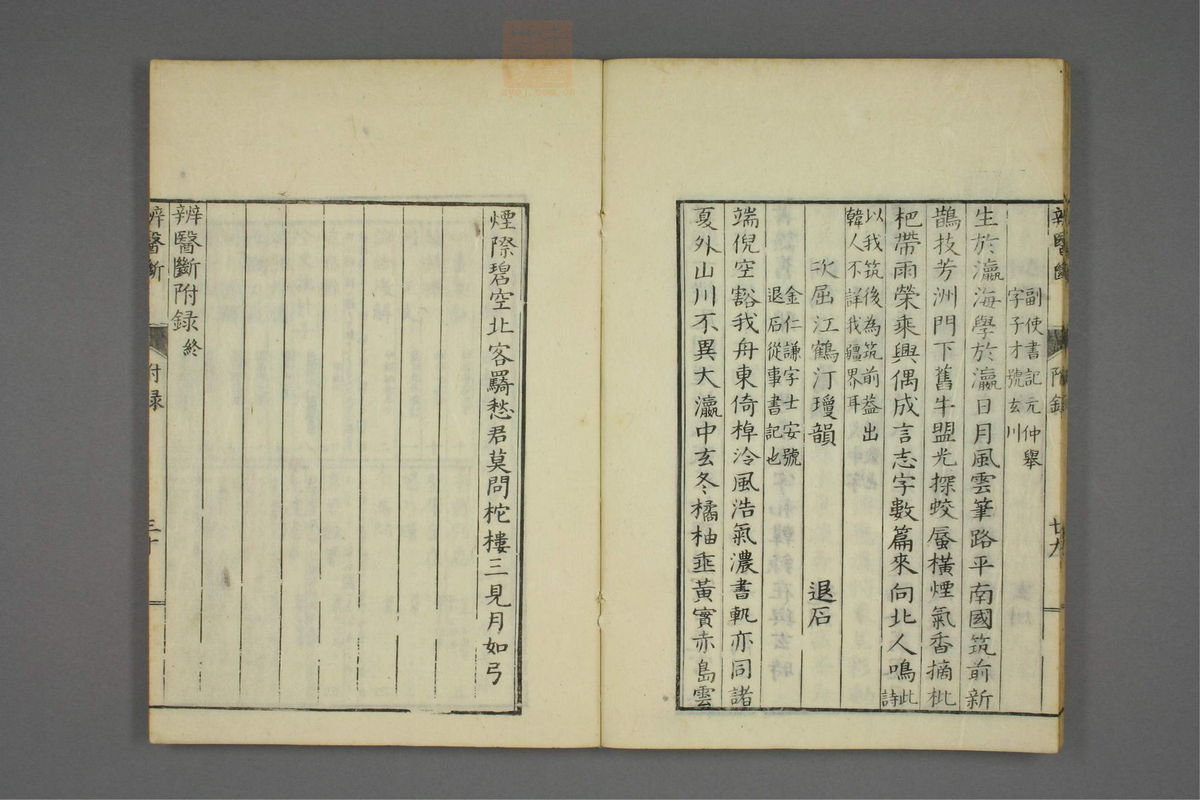 辨醫斷 附錄 廿九
副使書記元仲舉
字子才號玄川
生於瀛海學於瀛日月風雲筆路平南國筑前新
鵲技芳洲門下舊牛盟光探蛟蜃橫煙氣香摘枇
杷帶雨榮乘興偶成言志字數篇來向北人鳴此詩
以我筑後為筑前益出
韓人不詳我疆界耳
次屈江鶴汀瓊韻 退石
金仁謙字士安號
退石從事書記也
端倪空豁我舟東倚棹泠風浩氣濃書軌亦同諸
夏外山川不異大瀛中玄冬橘柚垂黃實赤島雲
煙際碧空北客羈愁君莫問柁樓三見月如弓
辨醫斷附録終
辨醫斷 附录 三十